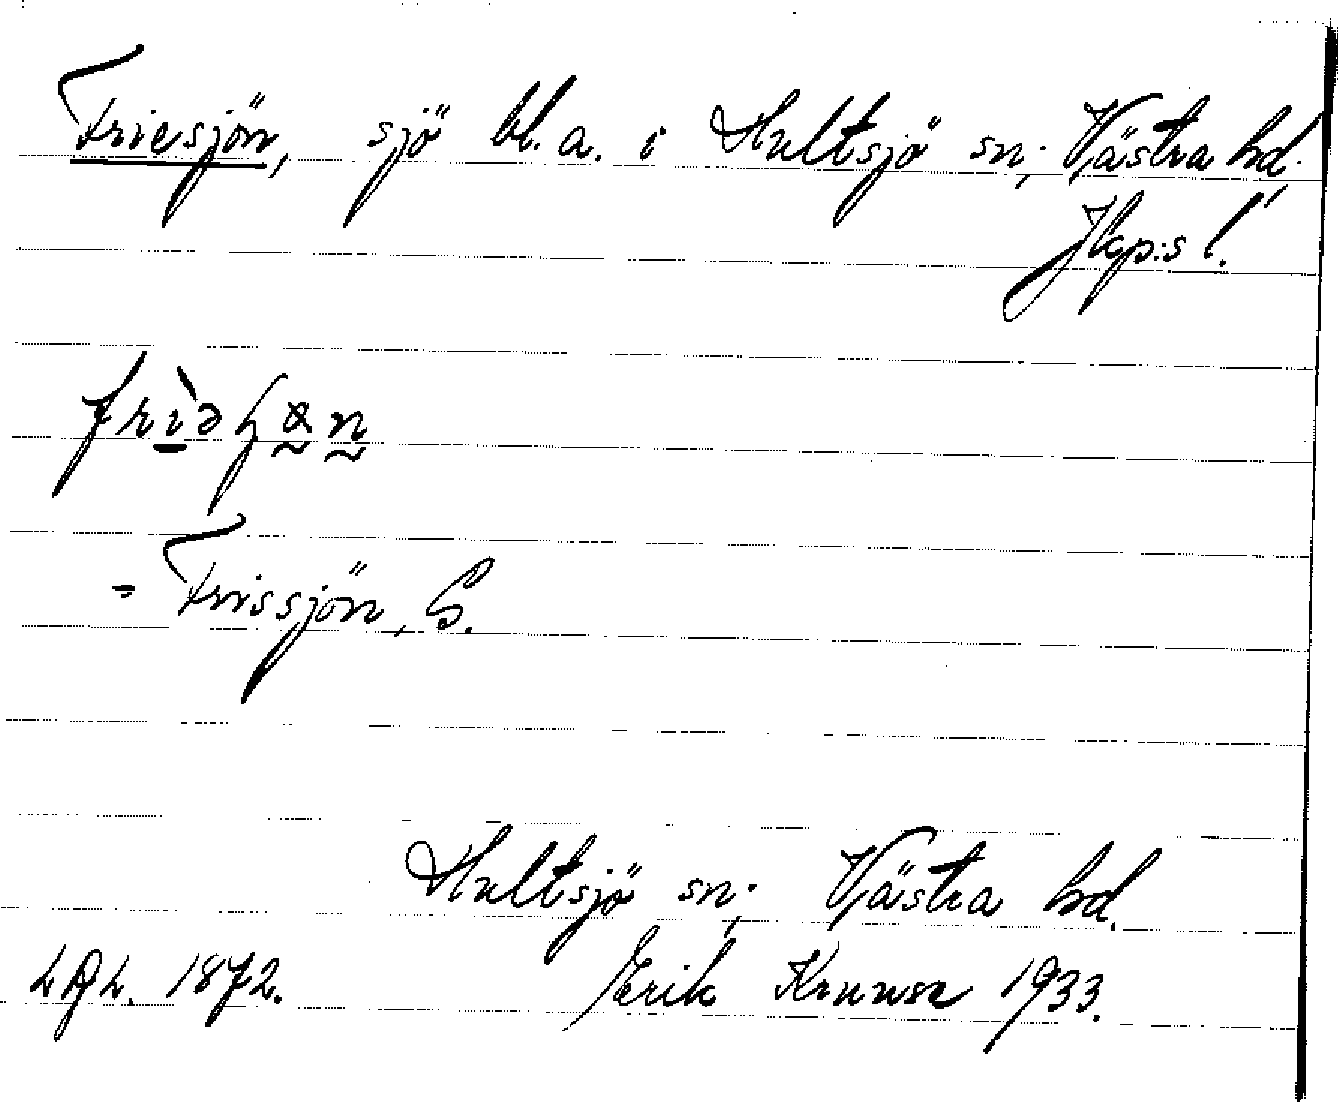 Friesjön, sjö bl. a. i Hultsjö sn; Västra hd.
Jkp:s l.
- Frissjön, G.
Hultsjö sn; Västra hd.
1872. Erik Kruuse 1933.